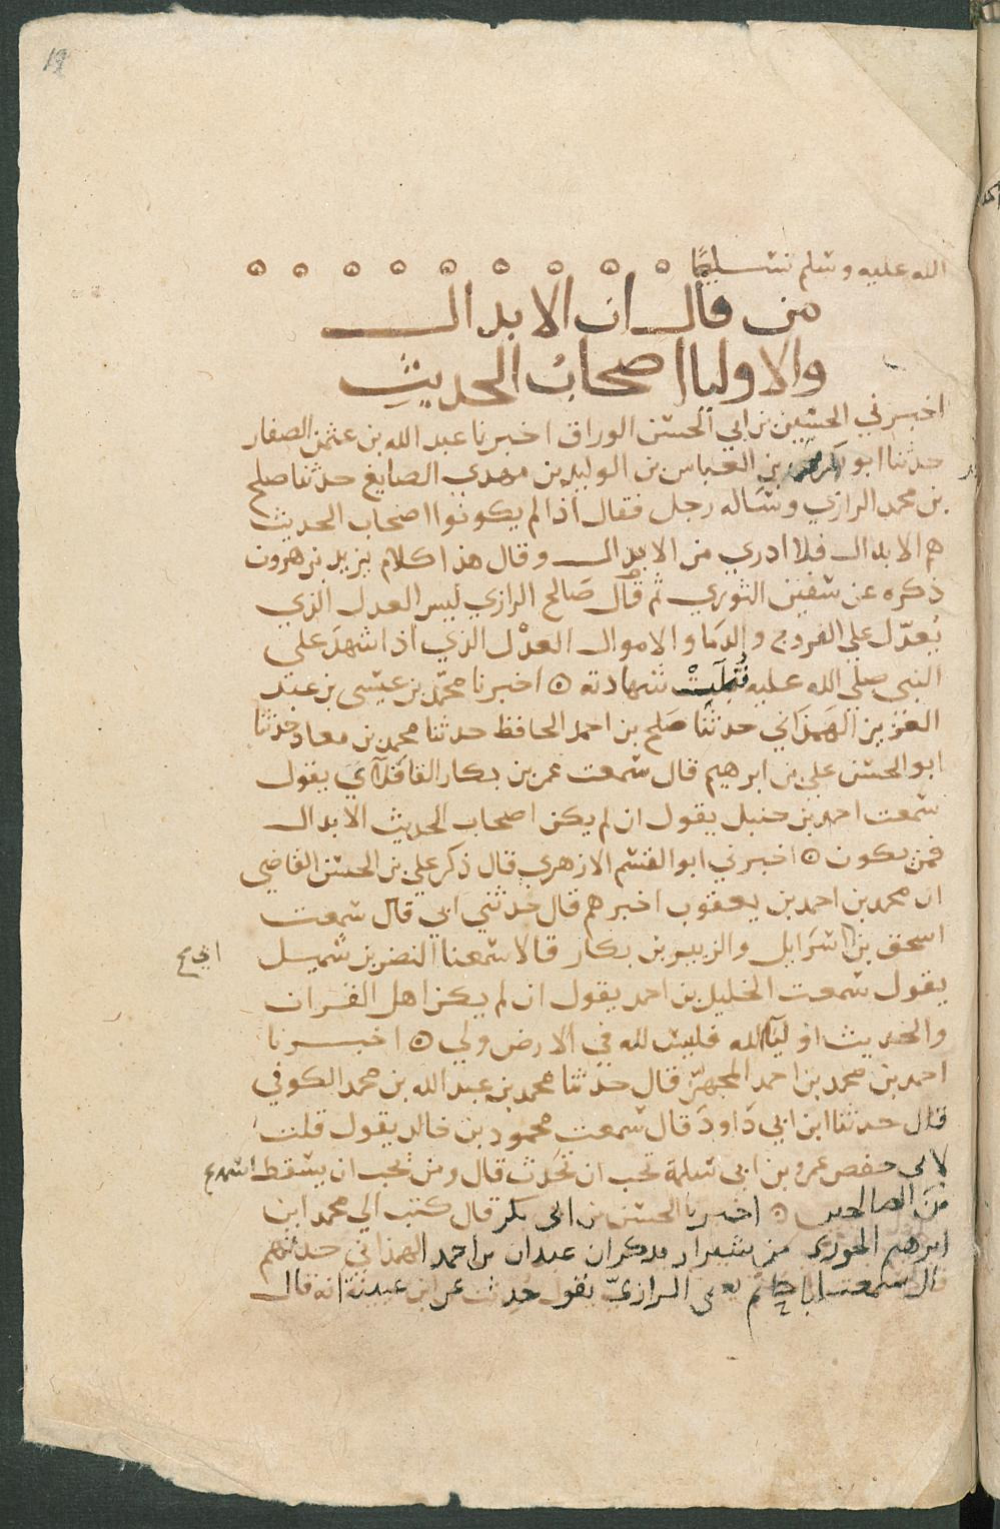 19
الله عليه وسلم تسليما ه ه ه ه ه ه ه ه ه
من قال ان الابدال
والاوليا اصحاب الحديث
اخبرني الحسين بن ابي الحسن الوراق اخبرنا عبد الله بن عثمن الصفار
حدثنا ابو بن العباس بن الوليد بن مهدي الصايغ حدثنا صلح
بن محمد الرازي وساله رجل فقال اذا لم يكونوا اصحاب الحديث
هم الابدال فلا ادري من الابدال وقال هذا كلام يزيد بن هرون
ذكره عن سفين الثوري ثم قال صالح الرازي ليس العدل الذي
يعدل علي الفروج والدما والاموال العدل الذي اذا شهد علي
النبي صلي الله عليه قبلت شهادته ه اخبرنا محمد بن عيسى بن عبد
العزيز الهمذاني حدثنا صلح بن احمد الحافظ حدثنا محمد بن معاذ حدثنا
ابو الحسن علي بن ابرهيم قال سمعت عمر بن بكار القافلآي يقول
سمعت احمد بن حنبل يقول ان لم يكن اصحاب الحديث الابدال
فمن يكون ه اخبرني ابو القسم الازهري قال ذكر علي بن الحسن القاضي
ان محمد بن احمد بن يعقوب اخبرهم قال حدثني ابي قال سمعت
اسحق بن اسرايل والزبير بن بكار قالا سمعنا النضر بن شميل
ابي
يقول سمعت الخليل بن احمد يقول ان لم يكن اهل القران
والحديث اوليا الله فليس لله في الارض ولي ه اخبرنا
احمد بن محمد بن احمد المجهز قال حدثنا محمد بن عبد الله بن محمد الكوفي
قال حدثنا ابن ابي داود قال سمعت محمود بن خالد يقول قلت
لابي حفص عمرو بن ابي سلمة تحب ان تحدث قال ومن يحب ان يسقط اسمه
من الصالحين ه اخبرنا الحسن بن ابي بكر قال كتب الي محمد ابن
ابرهيم الجوري من شيراز يذكر ان عبدان بن احمد الهمذاني حدثهم
قال سمعت ابا حاتم يعني الرازي يقول حدث عن ابن عيينة انه قال